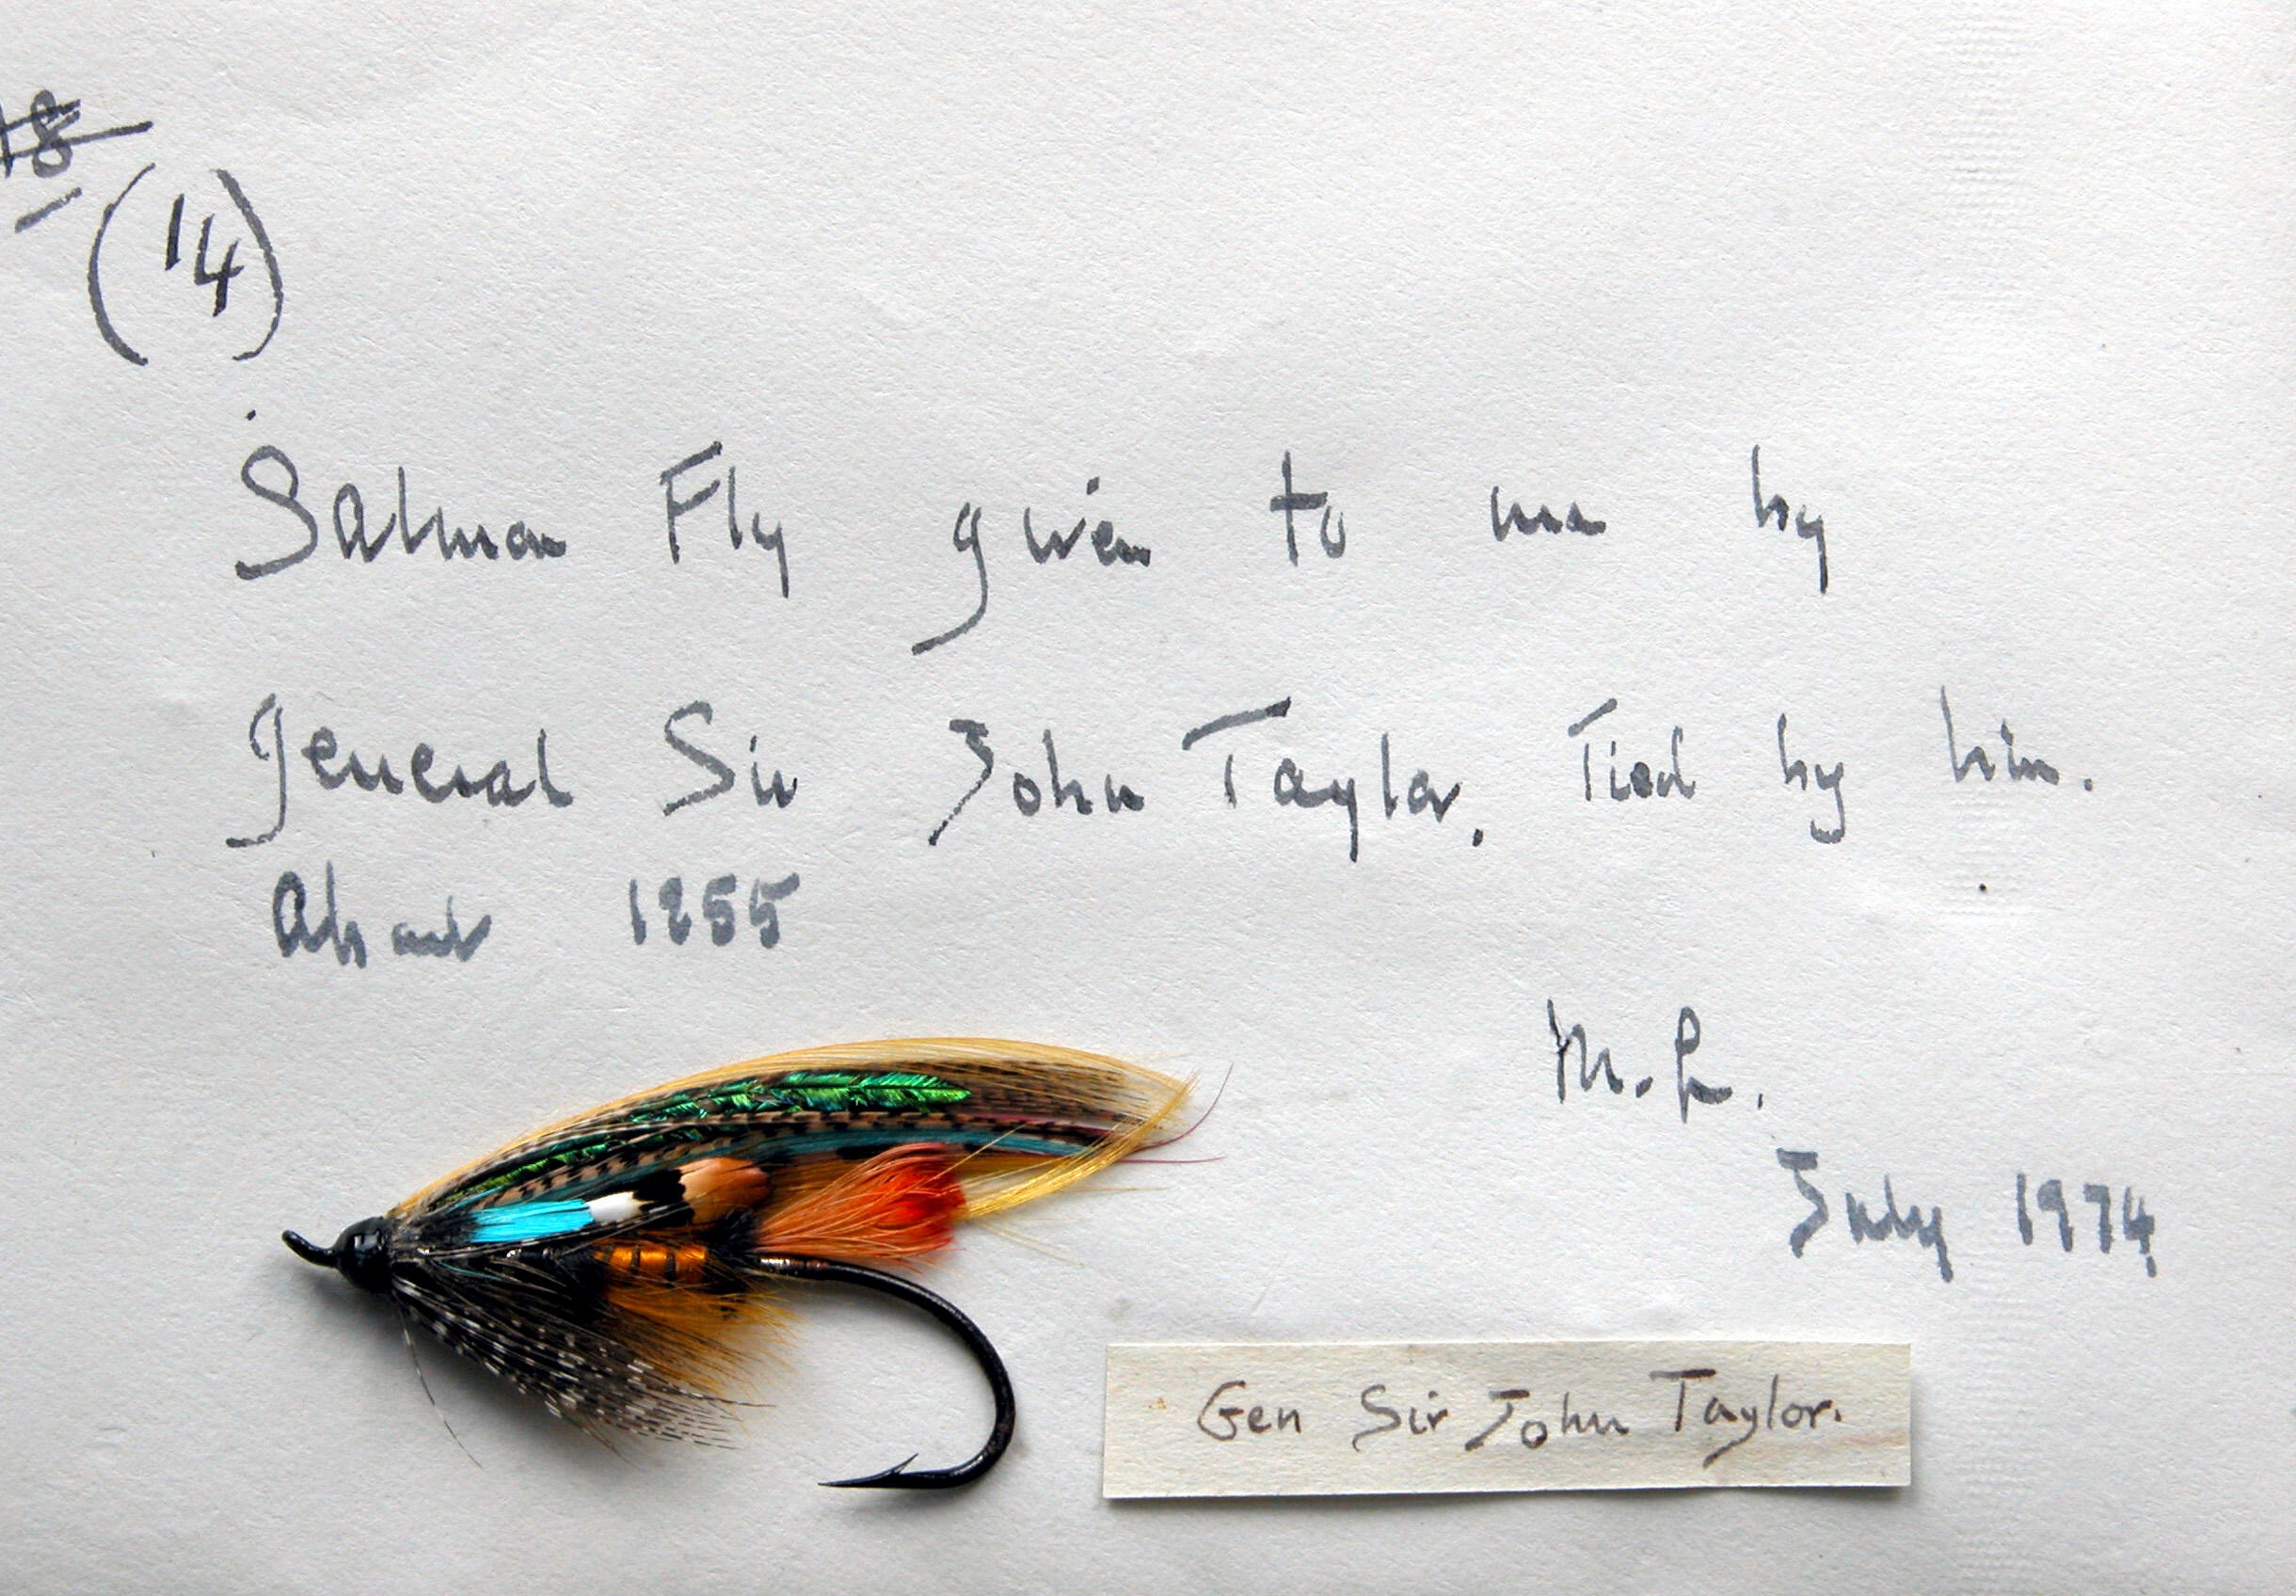 18
(14)
Salmon Fly given to me by
General Sir John Taylor. Tied by him.
About
M.L.
July 1974
Gen Sir John Taylor.